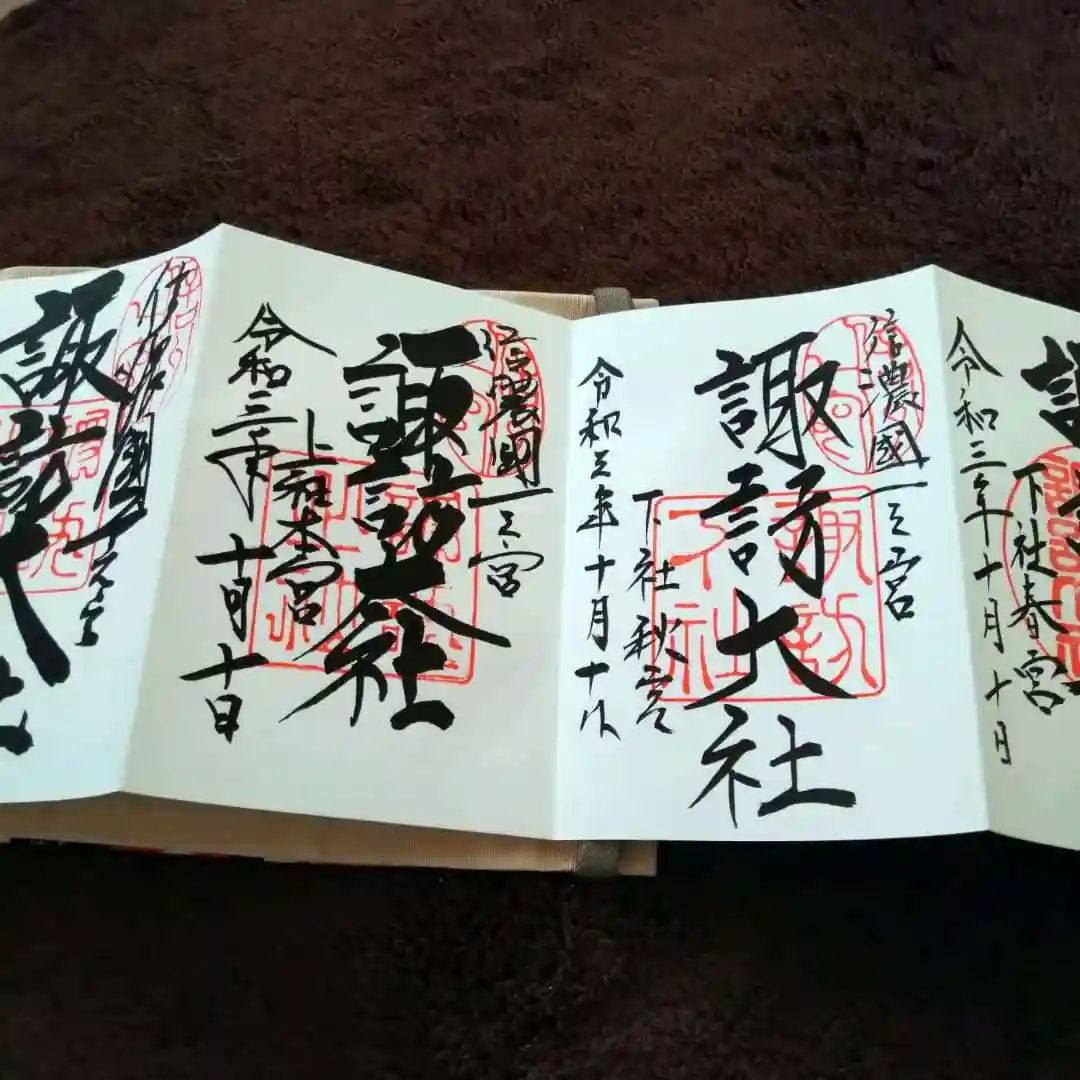 諏
下社春宮
令和三年十月十日
信濃國一之宮
諏訪大社
諏訪
大社
下社秋宮
令和三年十月十日
信濃國一之宮
諏訪大社
上社本宮
令和三年十月十日
信濃國一之宮
諏訪大社